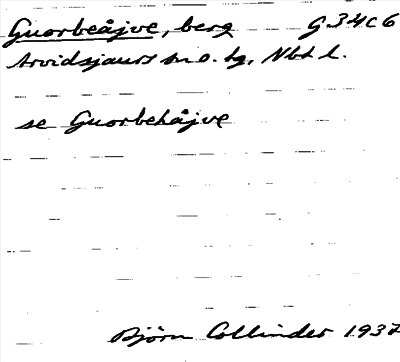 Guorbeåjve, berg G34C6
Arvidsjaurs sn o. tg, Nbt l.
se Guorbehåjve
Björn Collinder 1937